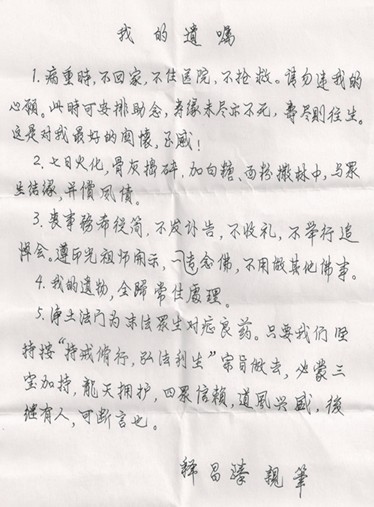 我的遺嘱
1.病重時,不回家,不住医院,不抢救。请勿违我的
心願。此時可安排助念,寿缘未尽亦不死,壽尽則往生。
这是对我最好的関懷,至感!
2.七日火化,骨灰搗碎,加白糖、面粉撒林中,与眾
生结缘,并償夙债。
3.丧事務希從简,不发讣告,不收礼,不举行追
悼会。遵印光祖师開示,一边念佛,不用做其他佛事。
4.我的遺物,全歸常住處理。
5.净土法门为末法眾生对症良药。只要我们坚
持按“持戒修行,弘法利生”宗旨做去,必蒙三
宝加持,龍天拥护,四眾信賴,道風兴盛,後
继有人,可断言也。
釋昌臻親筆